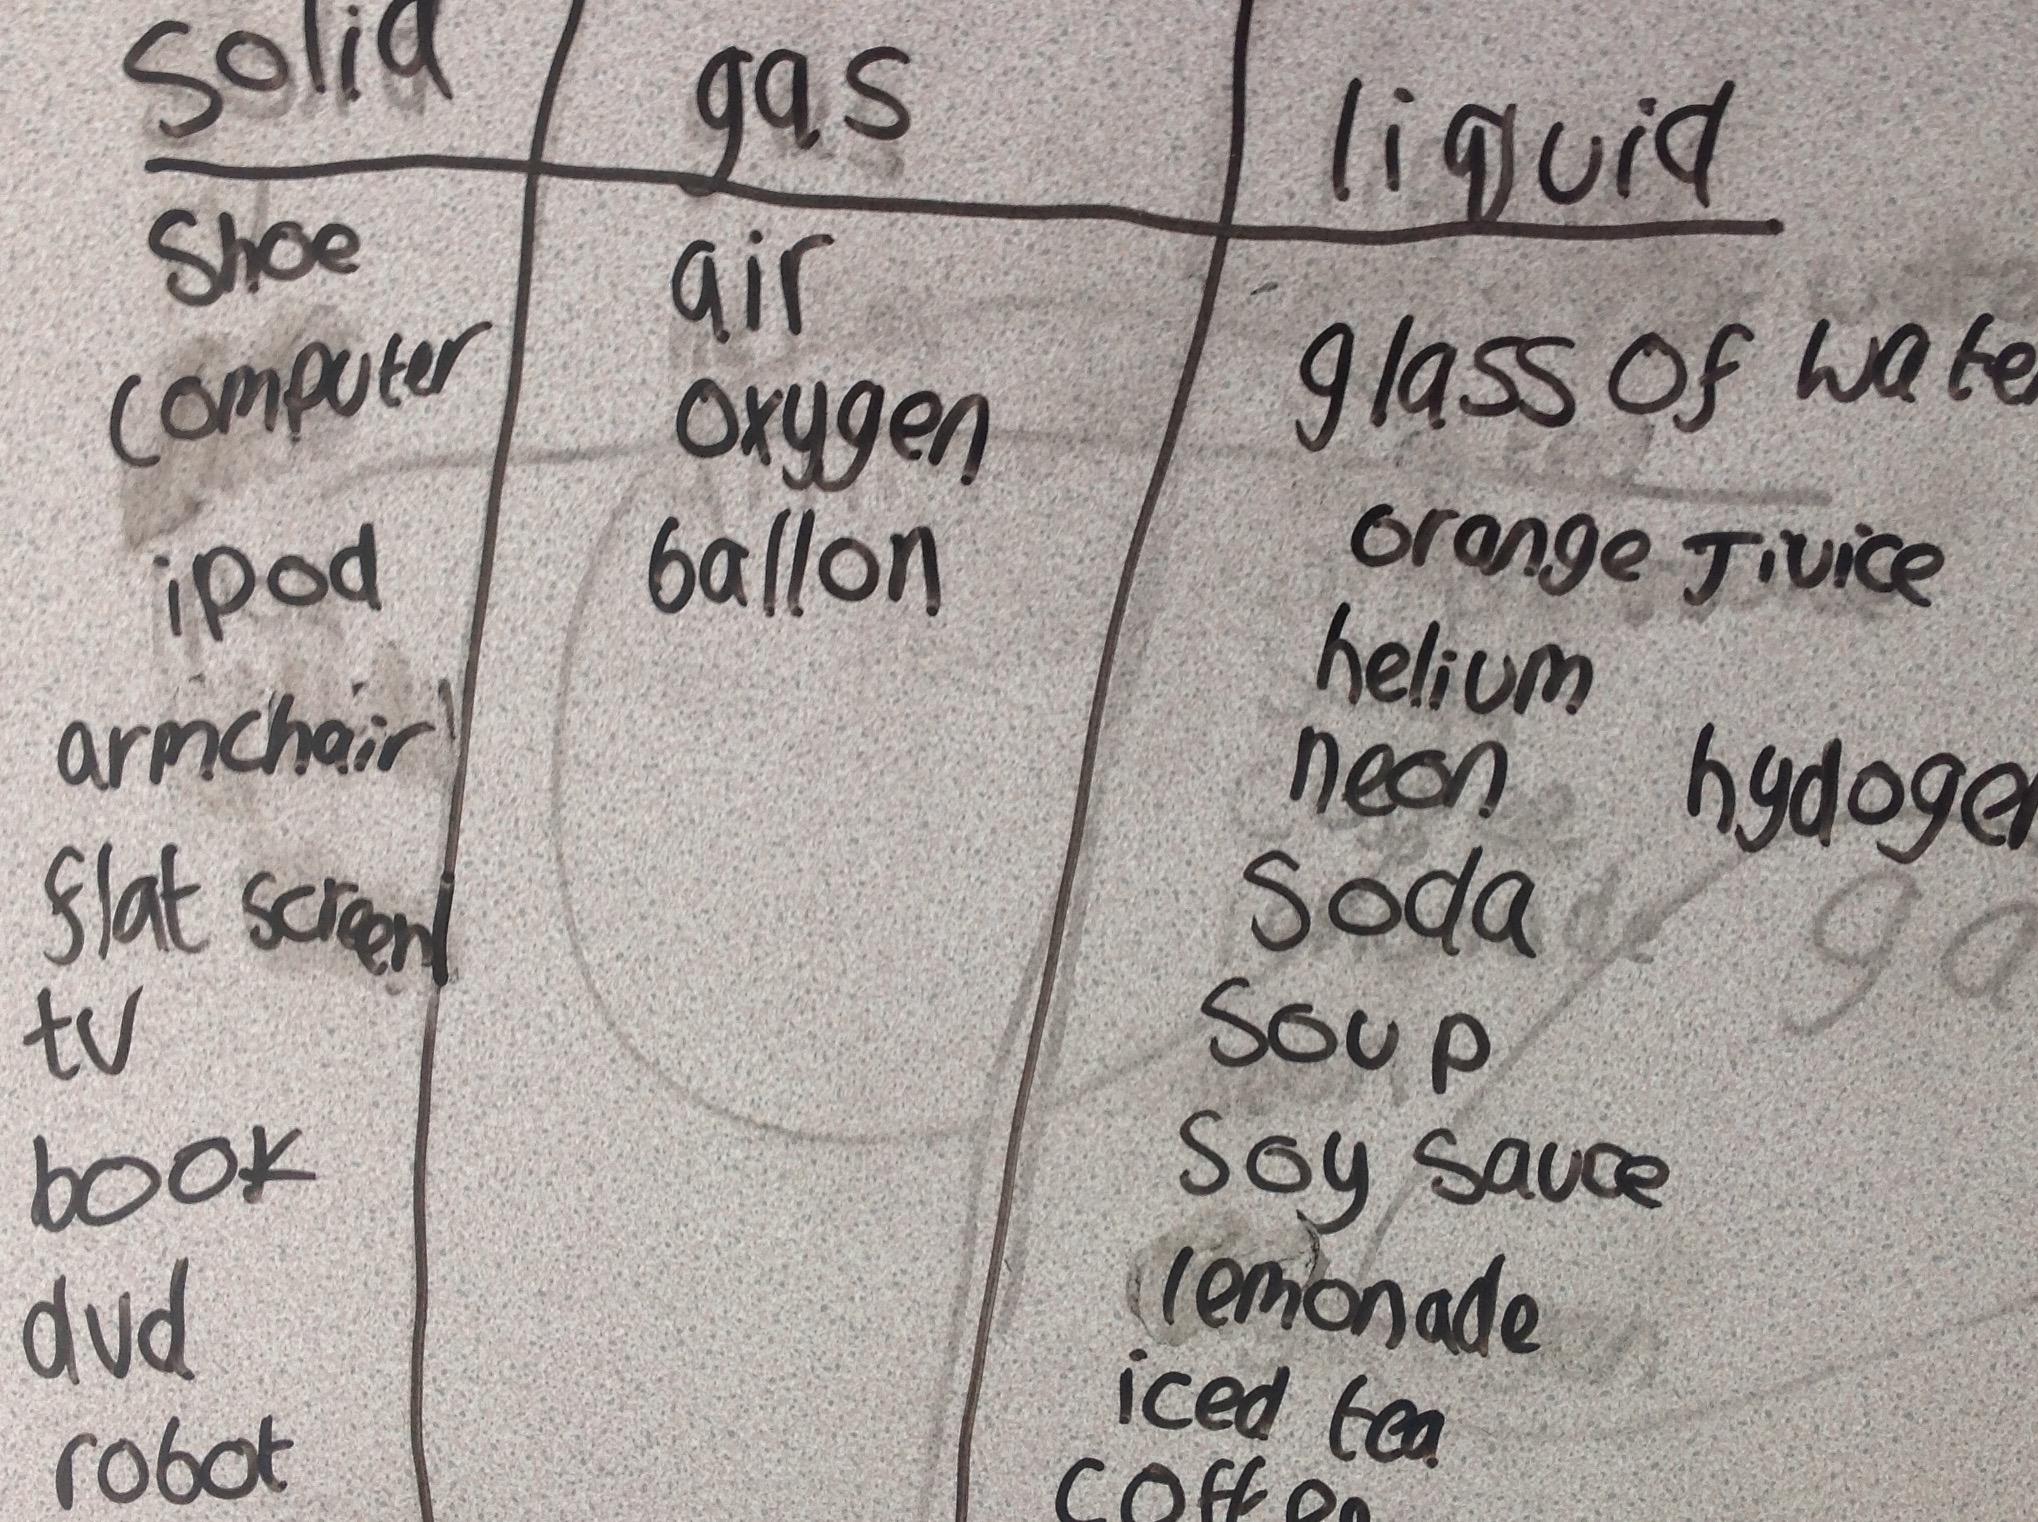 solid gas liquid
shoe
computer
ipod
armchair
flat screen
tv
book
dvd
robot
air
oxygen
ballon
glass of water
orange Jivice
helium
neon hydogen
soda
soup
soy sauce
lemonade
iced tea
coffee